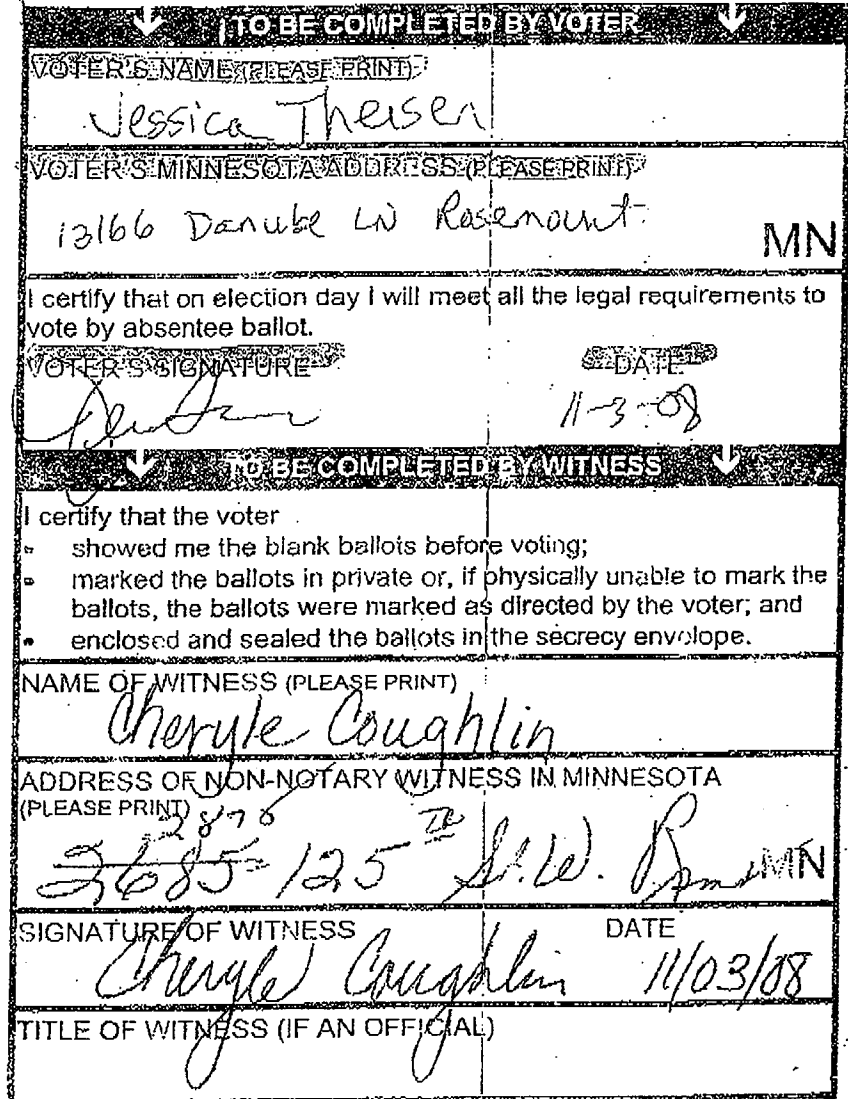 TO BE COMPLETED BY VOTER
VOTER'S NAME (PLEASE PRINT)
Jessica Theisen
VOTER'S MINNESOTA ADDRESS (PLEASE PRINT)
13166 Danube LN Rosemount
MN
I certify that on election day I will meet all the legal requirements to
vote by absentee ballot.
VOTER'S SIGNATURE DATE
11-3-08
TO BE COMPLETED BY WITNESS
I certify that the voter
• showed me the blank ballots before voting;
• marked the ballots in private or, if physically unable to mark the
ballots, the ballots were marked as directed by the voter; and
• enclosed and sealed the ballots in the secrecy envelope.
NAME OF WITNESS (PLEASE PRINT)
Cheryle Coughlin
ADDRESS OF NON-NOTARY WITNESS IN MINNESOTA
(PLEASE PRINT)
2878
2685 125 TH St. W. MN
SIGNATURE OF WITNESS DATE
Cheryle Coughlin 11/03/08
TITLE OF WITNESS (IF AN OFFICIAL)